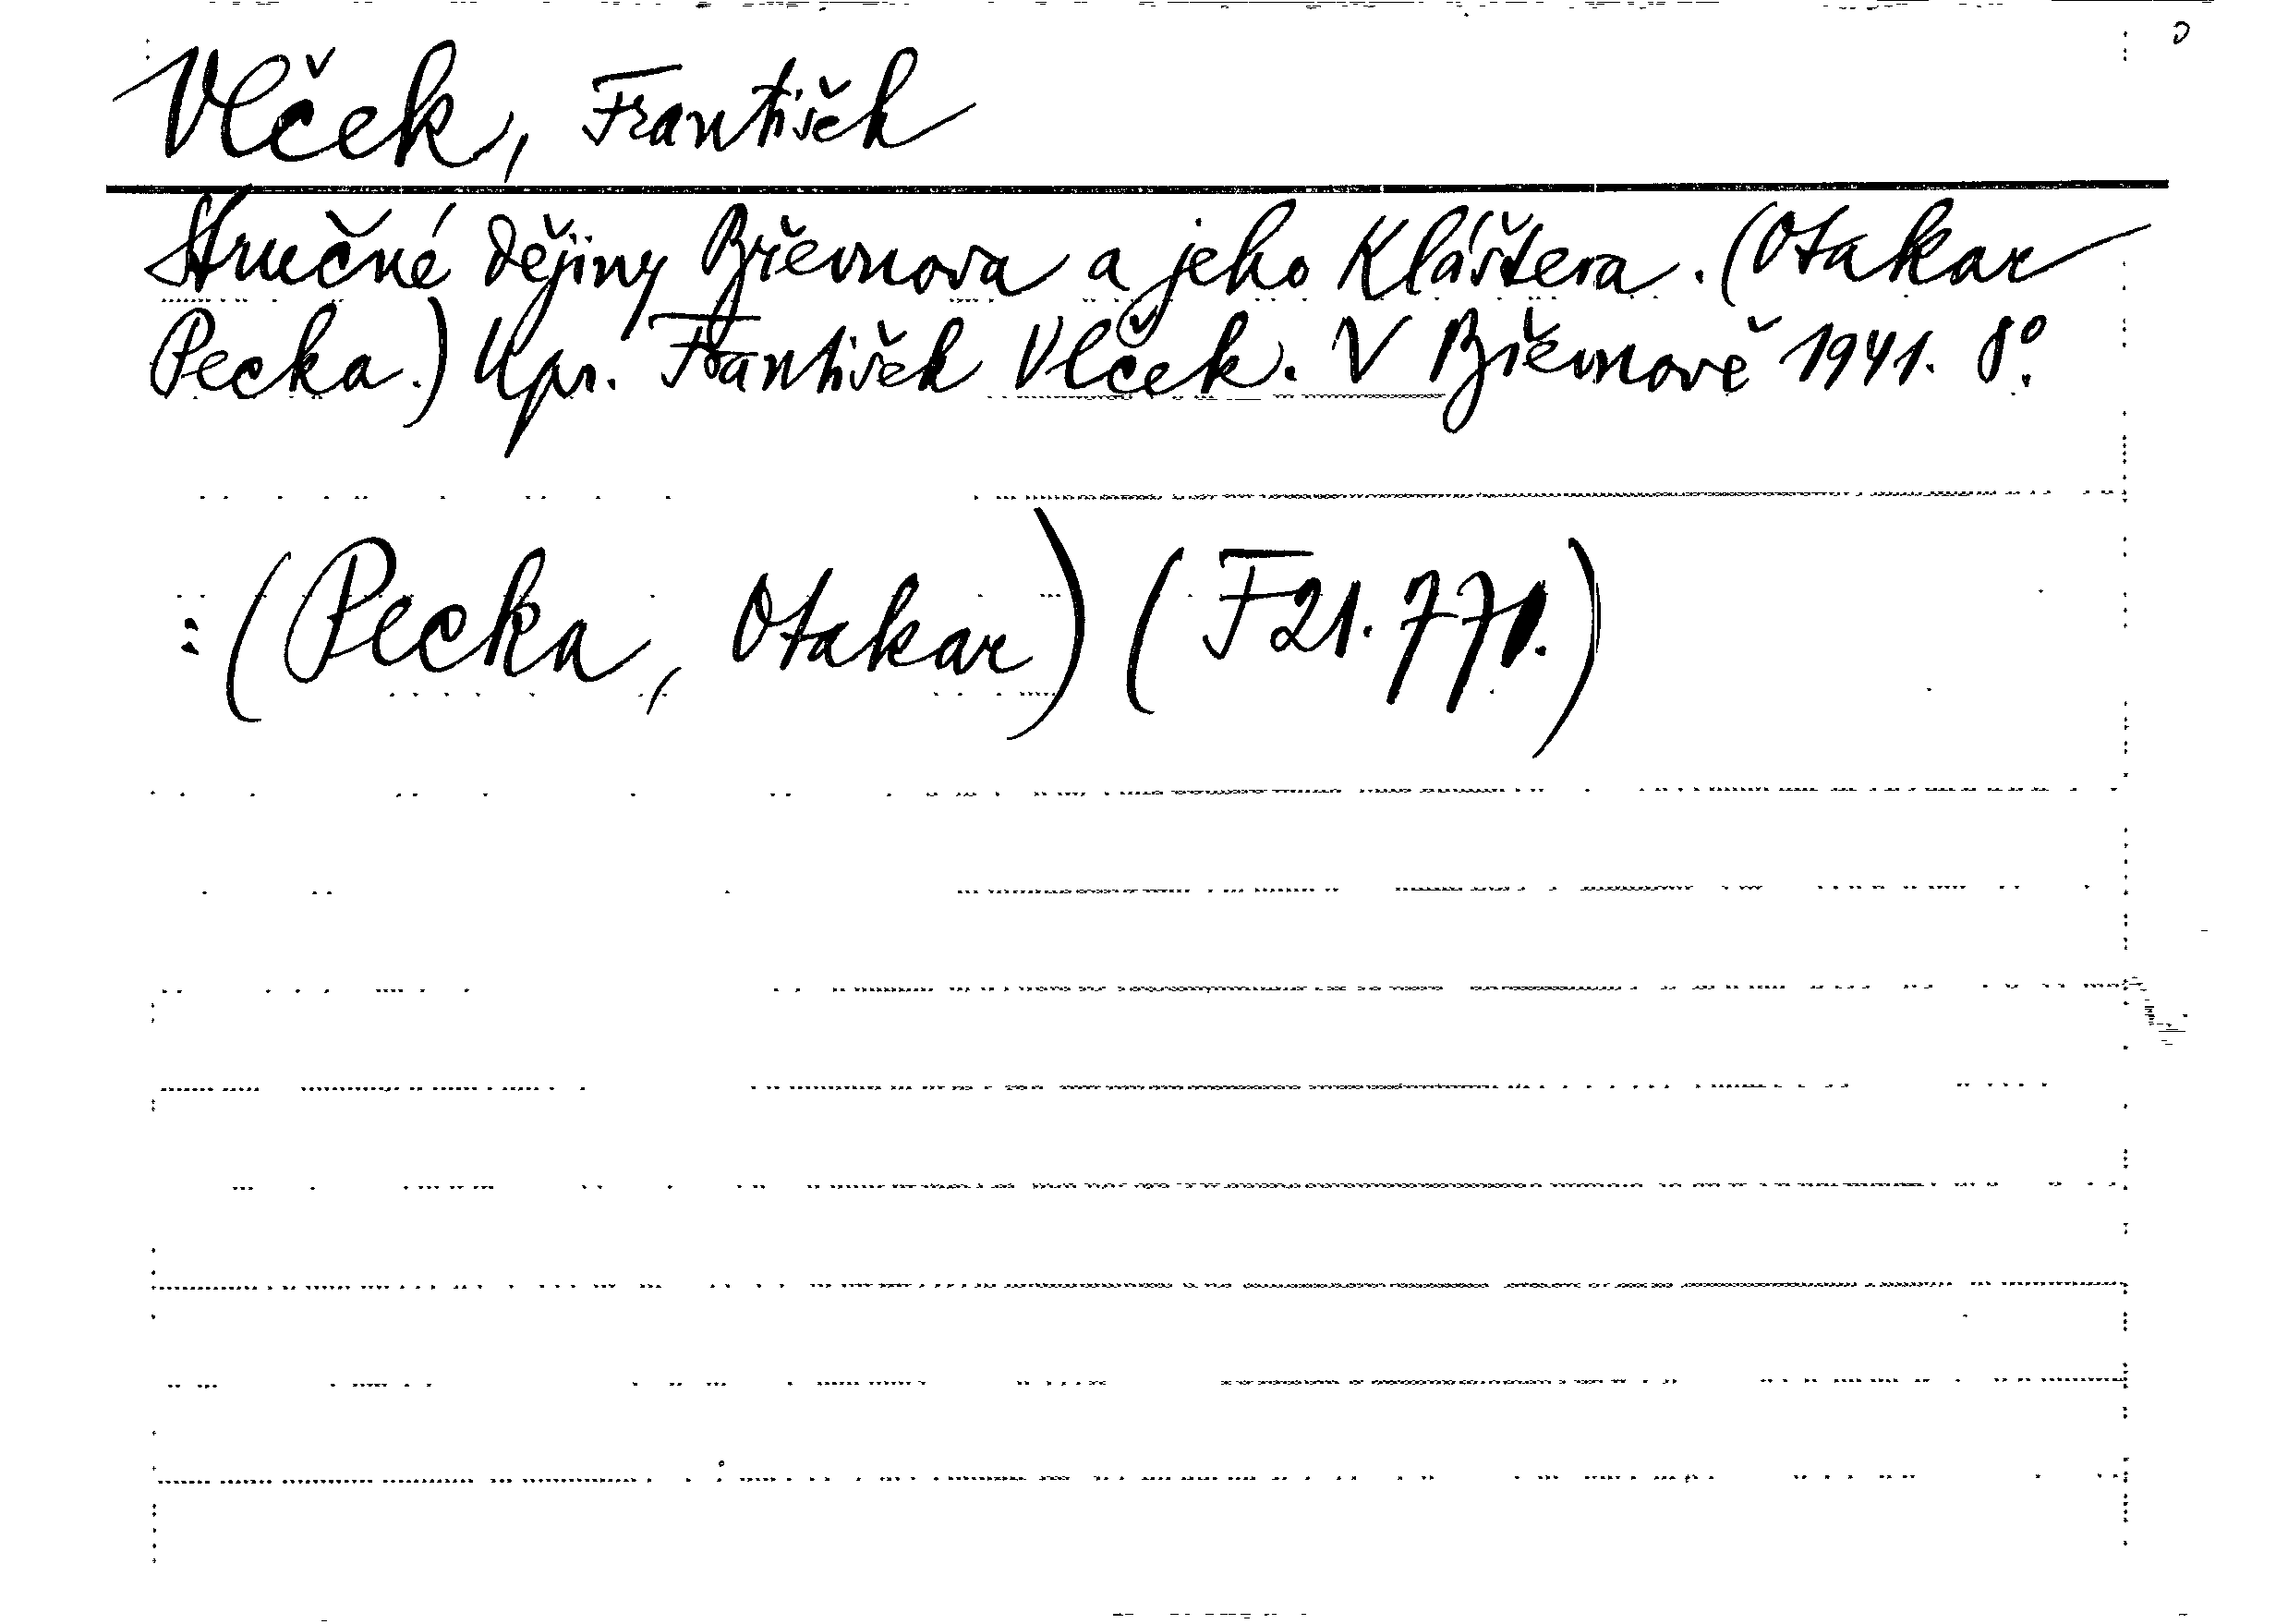 Vlček, František
Stručné dějiny Břevnova a jeho Kláštera. (Otakar
Pecka.) Upr. František Vlček. V Břevnově 1941. 8°.
: (Pecka, Otakar) (F21.770.)